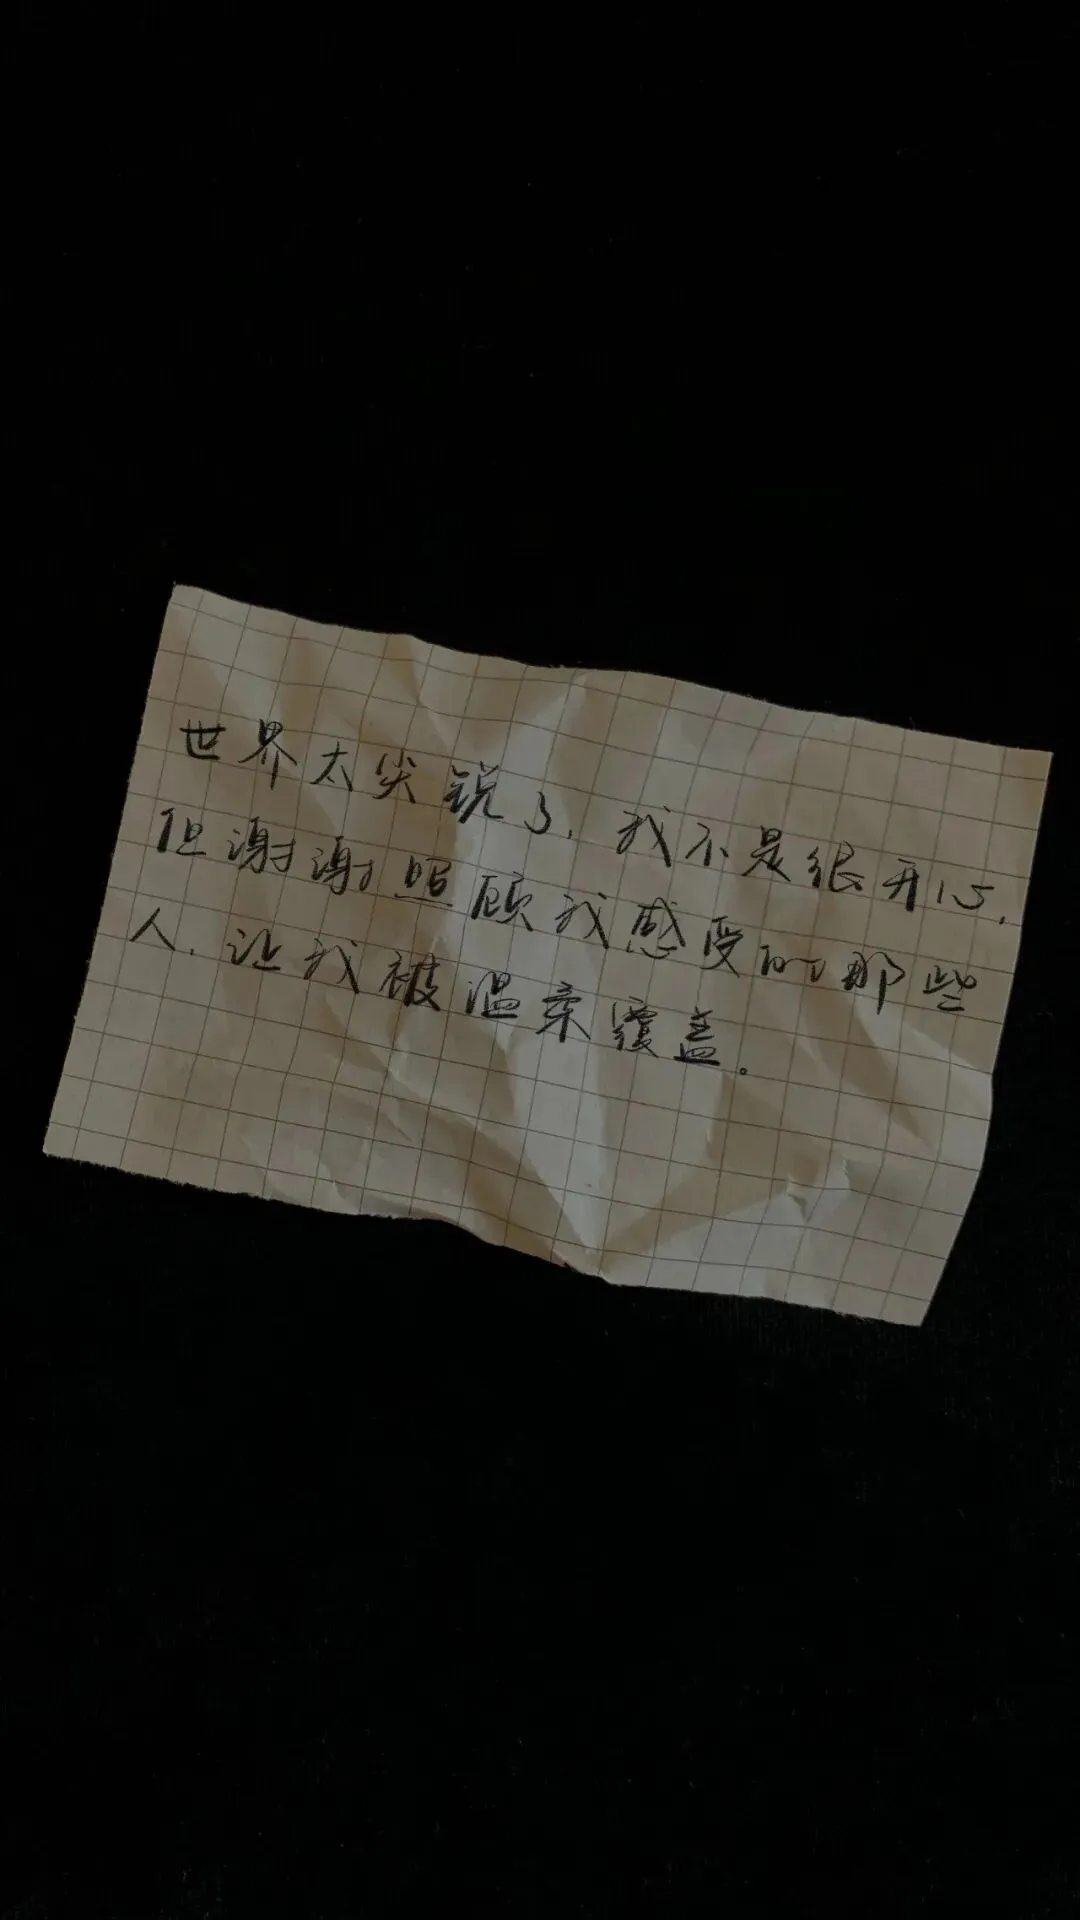 世界太尖锐了，我不是很开心，
但谢谢照顾我感受的那些
人，让我被温柔覆盖。